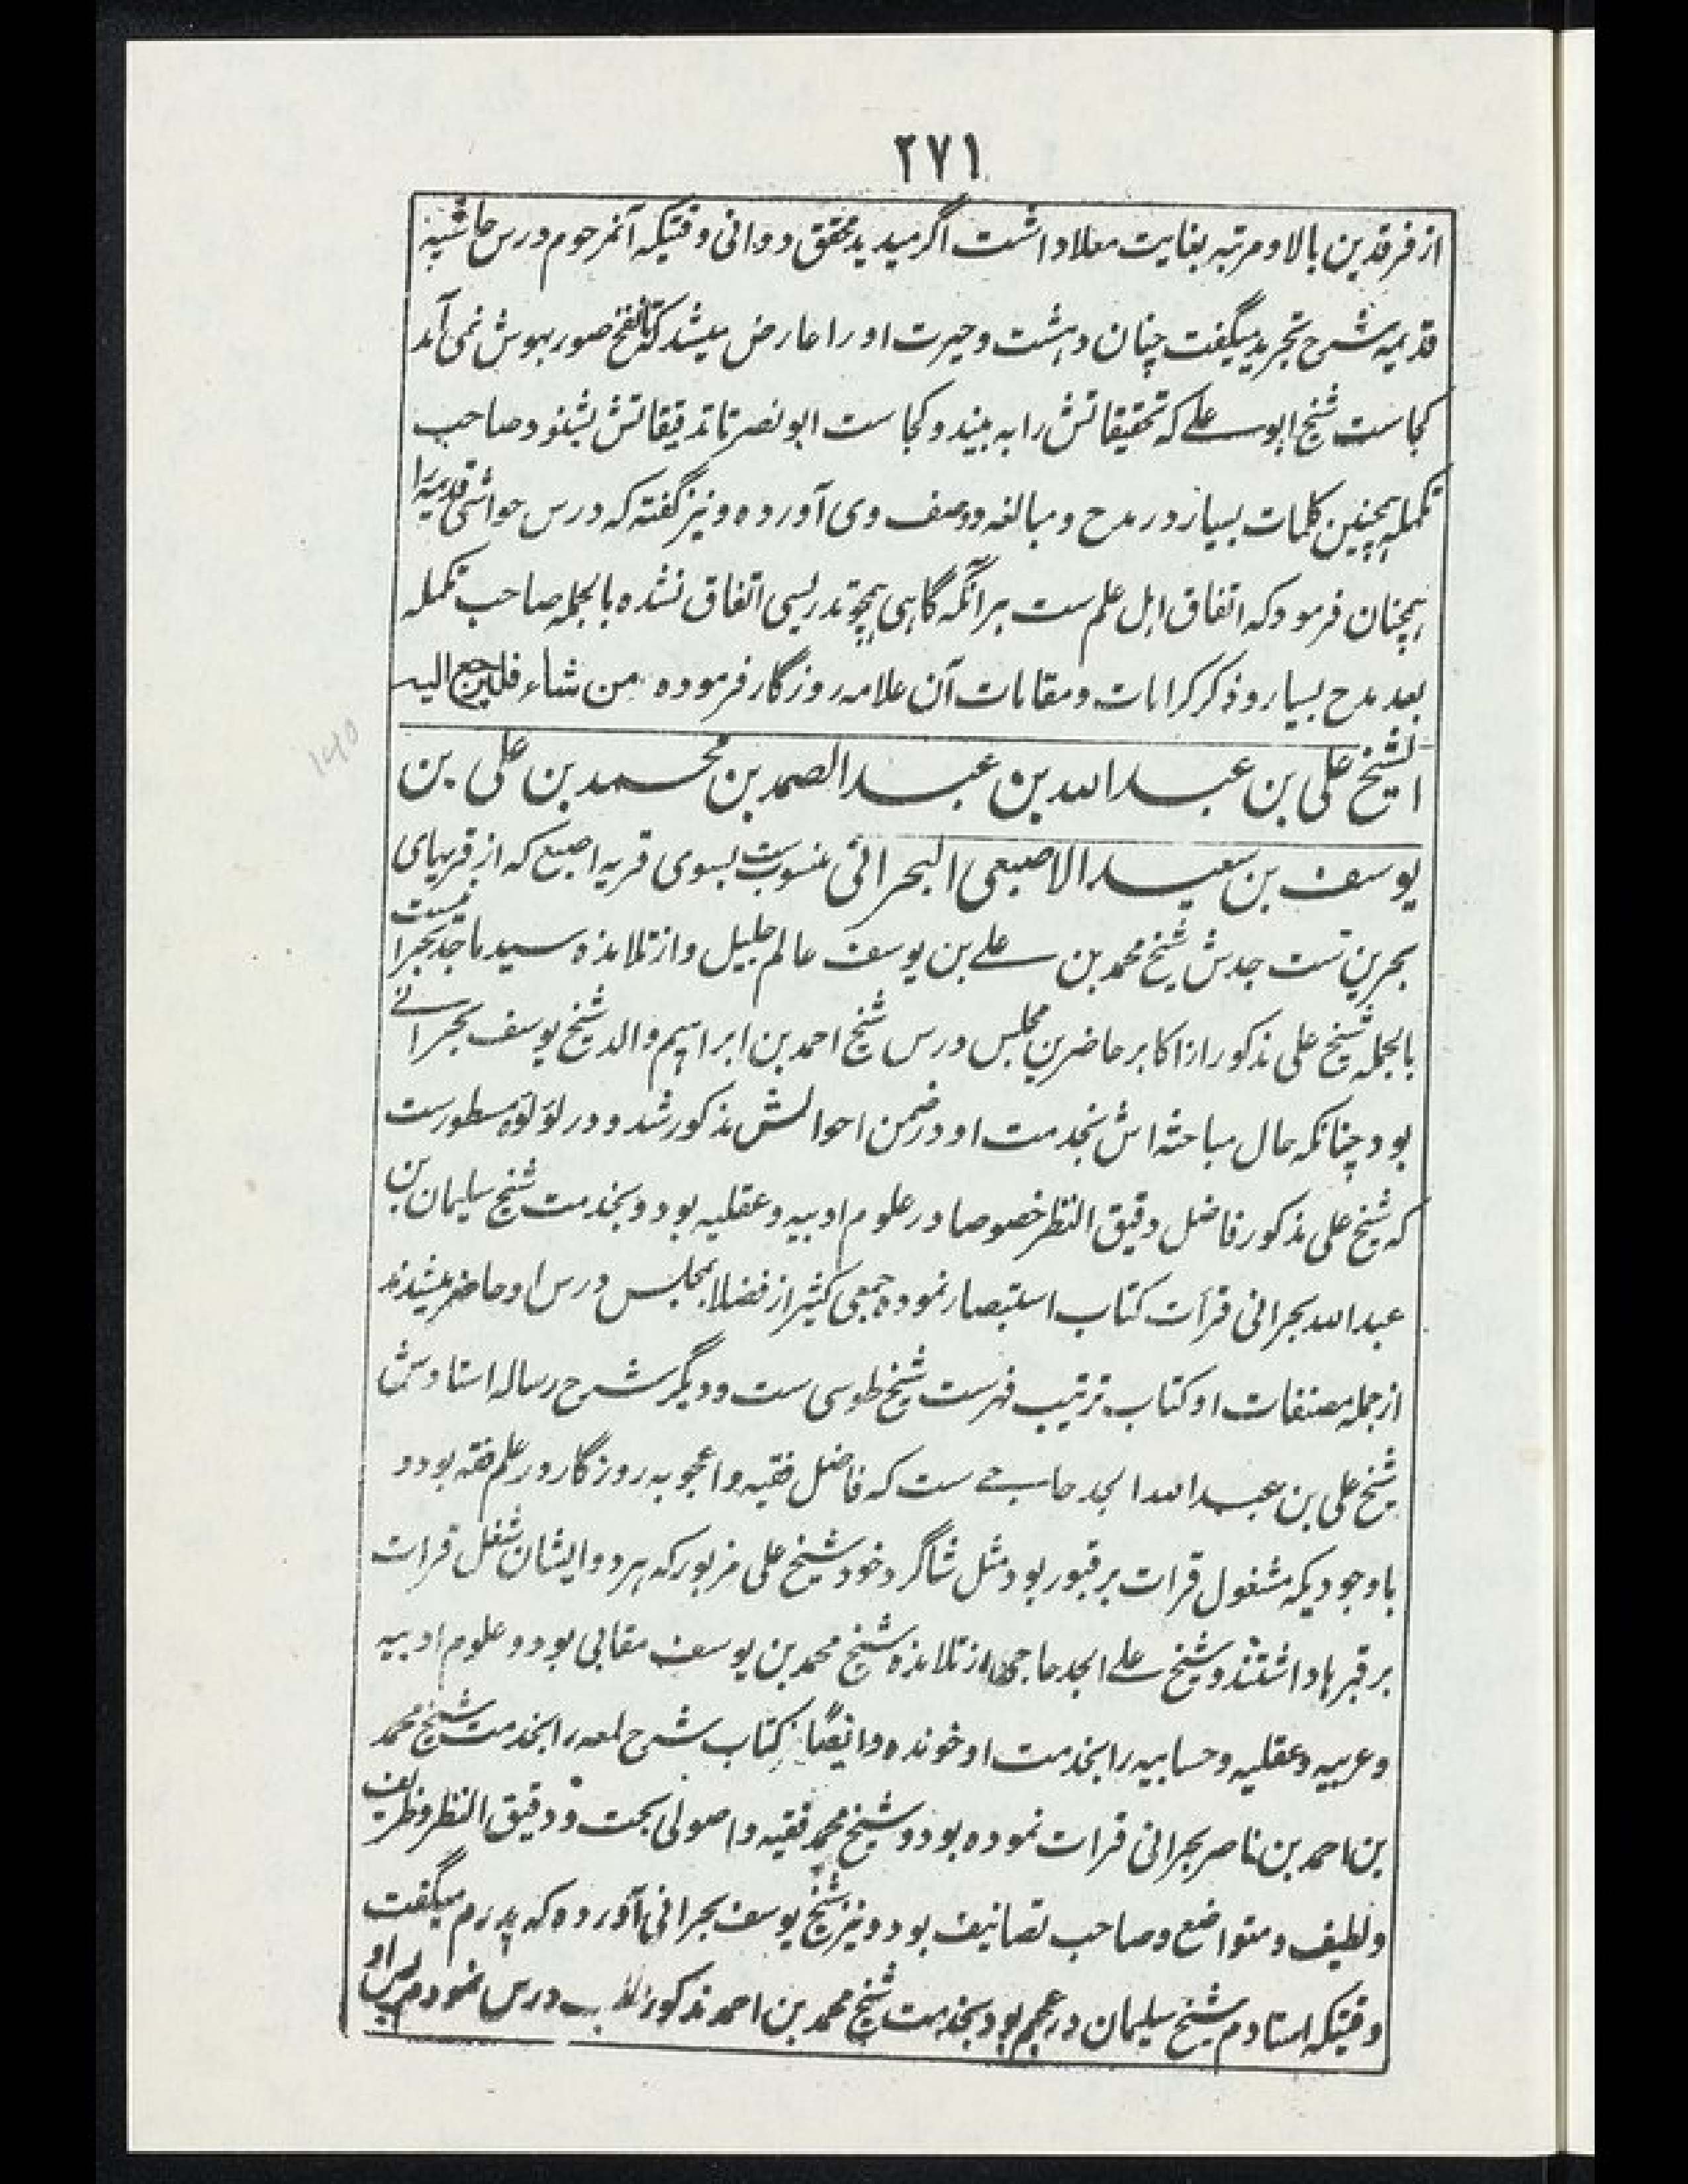 ۲۷۱
از فرقدین بالا و مرتبه بغایت معلا داشت اگر میدید محقق دوانی وقتیکه آنمرحوم درس حاشیه
قدیمه شرح تجرید میگفت چنان دهشت و حیرت او را عارض میشد که تا نفخ صور بهوش نمی آمد
کجاست شیخ ابو علی که تحقیقاتش را به بیند و کجاست ابو نصر تا تدقیقاتش بشنود صاحب
تکمله همچنین کلمات بسیار در مدح و مبالغه وصف وی آورده و نیز گفته که درس حواشی قدیمه را
همچنان فرمود که اتفاق اهل علم ست بر انکه گاهی همچو تدریسی اتفاق نشده بالجمله صاحب تکمله
بعد مدح بسیار و ذکر کرامات و مقامات آن علامه روزگار فرموده من شاء فلیراجع الیه
الشیخ علی بن عبد الله بن عبد الصمد بن محمد بن علی بن
یوسف بن سعید الاصبعی البحرانی منسوبست بسوی قریه اصبع که از قریهای
بحرین ست جدش شیخ محمد بن علی بن یوسف عالم جلیل و از تلامذه سید ماجد بحرانیست
بالجمله شیخ علی مذکور از اکابر حاضرین مجلس درس شیخ احمد بن ابراهیم والد شیخ یوسف بحرانی
بود چنانکه حال مباحثه اش بخدمت او در ضمن احوالش مذکور شد و در لؤلؤه مسطورست
که شیخ علی مذکور فاضل دقیق النظر خصوصا در علوم ادبیه و عقلیه بود و بخدمت شیخ سلیمان بن
عبد الله بحرانی قرأت کتاب استبصار نموده جمعی کثیر از فضلا بمجلس درس او حاضر میشدند
از جمله مصنفات او کتاب ترتیب فهرست شیخ طوسی ست و دیگر شرح رساله استادش
شیخ علی بن عبد الله الجدحاجی ست که فاضل فقیه و اعجوبه روزگار در علم فقه بود و
باوجودیکه مشغول قرات بر قبور بود مثل شاگرد خود شیخ علی مزبور که هر دو ایشان شغل قرات
بر قبرها داشتند و شیخ علی الجدحاجی از تلامذه شیخ محمد بن یوسف مقابی بود و علوم ادبیه
و عربیه و عقلیه و حسابیه را بخدمت او خونده و ایضًا کتاب شرح لمعه را بخدمت شیخ محمد
بن احمد بن ناصر بحرانی قرات نموده بود و شیخ محمد فقیه و اصولی بحت و دقیق النظر و ظریف
و لطیف و متواضع و صاحب تصانیف بود و نیز شیخ یوسف بحرانی آورده که پدرم میگفت
وقتیکه استادم شیخ سلیمان در عجم بود بخدمت شیخ محمد بن احمد مذکور درس نمودم